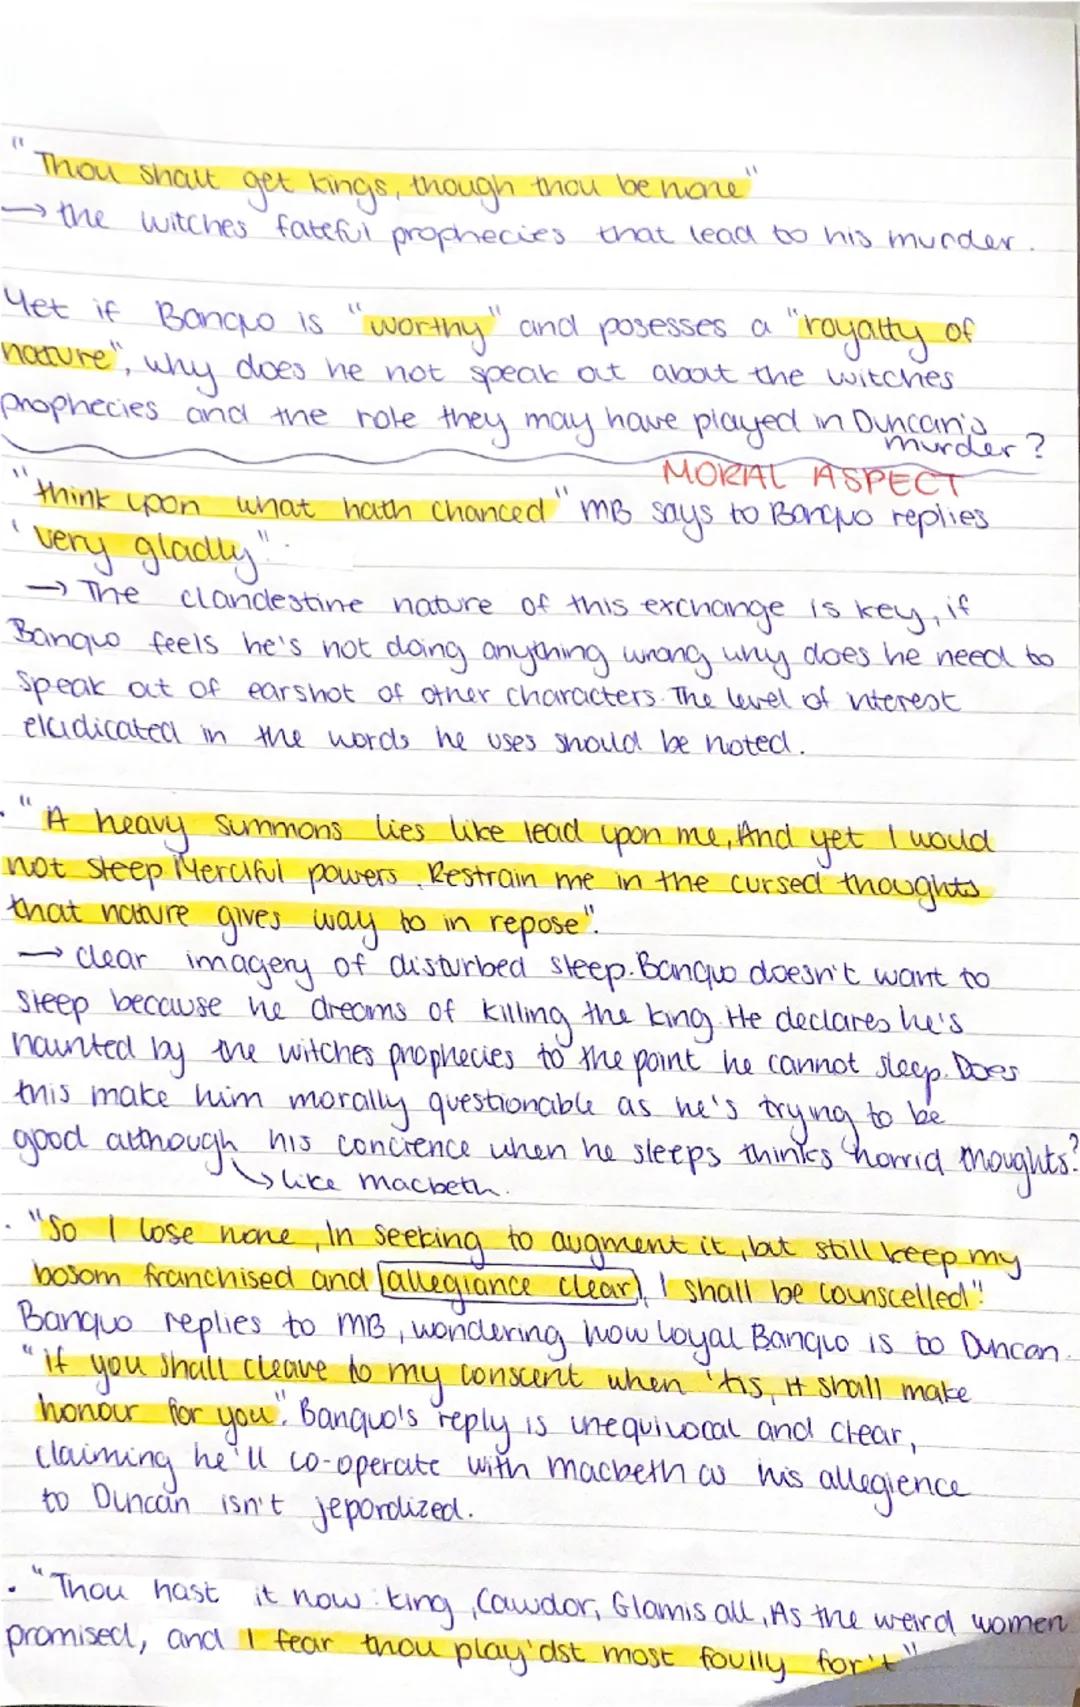 "Thou shalt get kings, though thou be none"
→ the witches fateful prophecies that lead to his murder.
Yet if Banquo is "worthy" and posesses a "royalty of
nature", why does he not speak out about the witches
prophecies and the role they may have played in Duncan's
murder?
MORAL ASPECT
"think upon what hath chanced" MB says to Banquo replies
'very gladly".
→ The clandestine nature of this exchange is key, if
Banquo feels he's not doing anything wrong why does he need to
speak out of earshot of other characters. The level of interest
eludicated in the words he uses should be noted.
. "A heavy summons lies like lead upon me, And yet I would
not sleep Merciful powers, Restrain me in the cursed thoughts
that nature gives way to in repose".
→ clear imagery of disturbed sleep. Banquo doesn't want to
sleep because he dreams of killing the king. He declares he's
haunted by the witches prophecies to the point he cannot sleep. Does
this make him morally questionable as he's trying to be
good although his concience when he sleeps thinks horrid thoughts?
↳ like macbeth.
. "So I lose none, In seeking to augment it, but still keep my
bosom franchised and [allegiance clear], I shall be counscelled".
Banquo replies to MB, wondering how loyal Banquo is to Duncan.
"if you shall cleave to my conscent when 'tis, it shall make
honour for you". Banquo's reply is unequivocal and clear,
claiming he'll co-operate with macbeth as his allegience
to Duncan isn't jepordized.
. "Thou hast it now: king, Cawdor, Glamis all, As the weird women
promised, and I fear thou play'dst most foully for't"